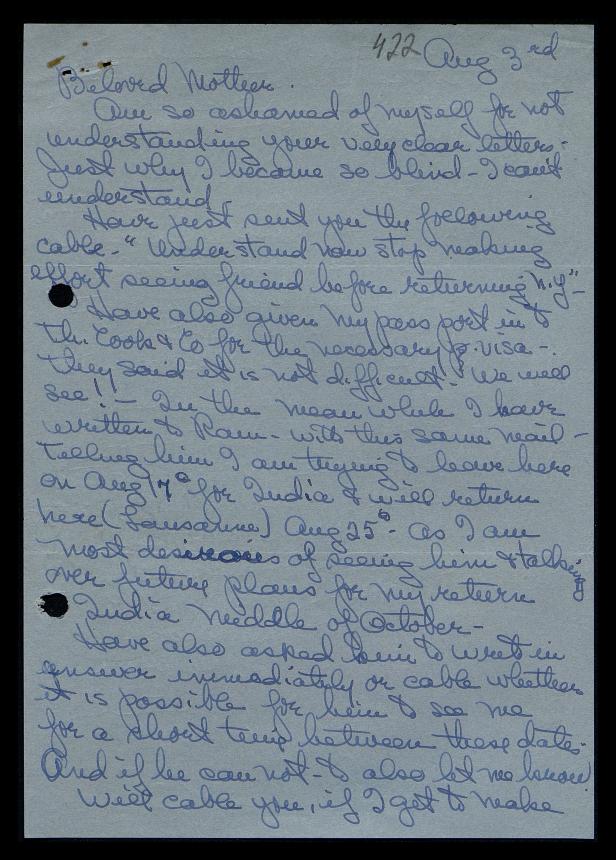 422 Aug 3rd
Beloved Mother.
Am so ashamed of myself for not
understanding your very clear letters.-
Just why I became so blind - I can't
understand.
Have just sent you the following
cable - "Understand now stop making
effort seeing friend before returning N.Y" -
Have also given my passport in to
Th. Cook & Co for the necessary visa -.
They said it is not difficult. We will
see! - In the mean while I have
written to Ram - with this same mail -
telling him I am trying to leave here
on Aug 17 for India & will return
here (Lausanne) Aug 25 - as I am
most desirous of seeing him & talking
over future plans for my return
India Middle of October -
Have also asked him to write in
answer immediately or cable whether
it is possible for him to see me
for a short time between these dates.
And if he can not - to also let me know.
Will cable you, if I get to make